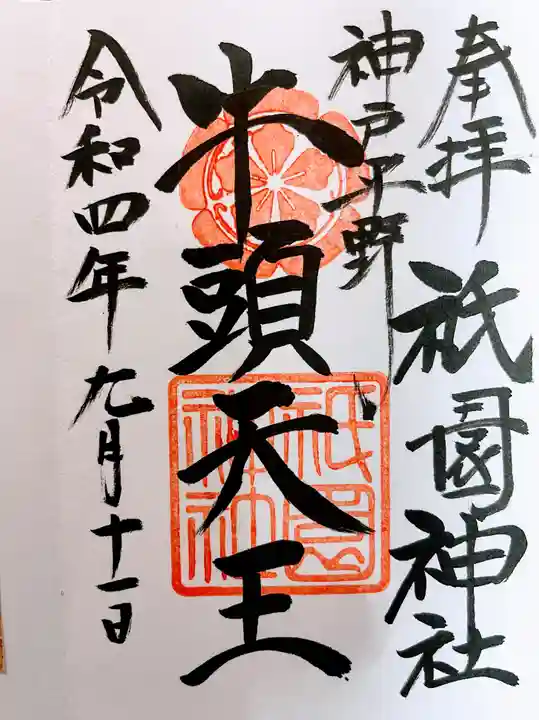 奉拝
祇園神社
神戸平野
牛頭天王
祇園
神社
令和四年九月十一日